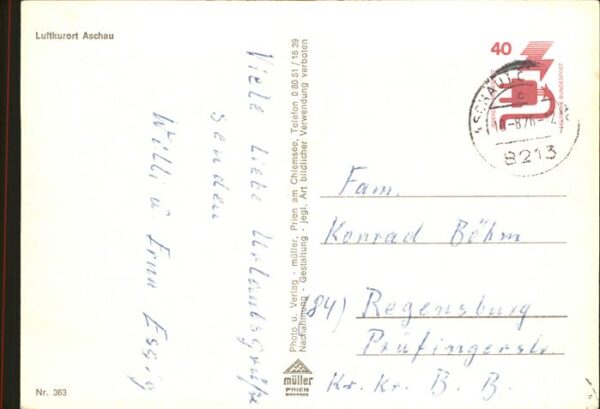 Luftkurort Aschau
Viele liebe Urlaubsgrüße
senden
Willi u Erna Essig
Photo u. Verlag - müller, Prien am Chiemsee, Telefon 0 80 51 / 16 39
Nachahmung - Gestaltung - jegl. Art bildlicher Verwendung verboten
müller
PRIEN
CHIEMSEE
40
DEUTSCHE BUNDESPOST
ASCHAU I. C
8213
Fam.
Konrad Böhm
84) Regensburg
Prüfingerstr.
Kr. Kr. B. B.
Nr. 363